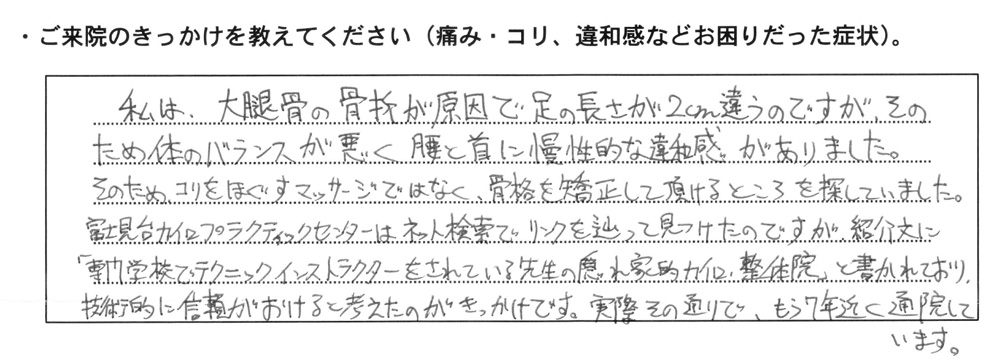 ・ご来院のきっかけを教えてください（痛み・コリ、違和感などお困りだった症状）。
私は、大腿骨の骨折が原因で足の長さが2cm違うのですが、その
ため体のバランスが悪く腰と首に慢性的な違和感がありました。
そのため、コリをほぐすマッサージではなく、骨格を矯正して頂けるところを探していました。
富士見台カイロプラクティックセンターはネット検索でリンクを辿って見つけたのですが、紹介文に
「専門学校でテクニックインストラクターをされている先生の隠れ家的カイロ・整体院」と書かれており、
技術的に信頼がおけると考えたのがきっかけです。実際その通りで、もう7年近く通院して
います。